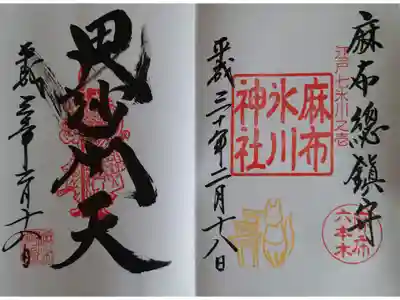 麻布總鎮守
江戸七氷川之壱
麻布
氷川
神社
六本木
平成三十年二月十八日
毘沙門天
平成三十年二月十八日